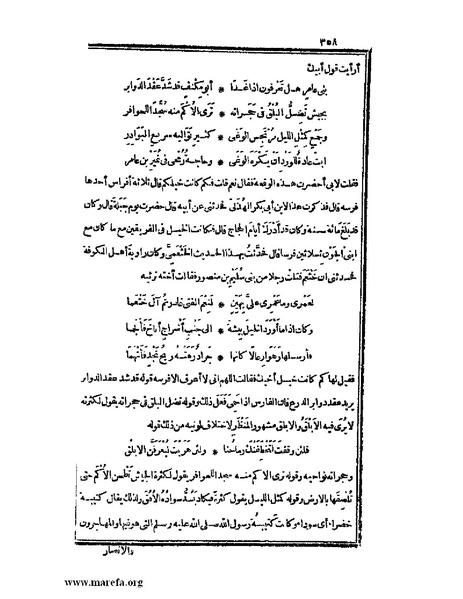 ٣٥٨
أرأيت قول أبيك
بنى عامر هل تعرفون اذا غدا * أبو مكنف قد شدّ عقد الدوابر
بجيش تضلّ البلق فى حجراته * ترى الأكم منه سجدا للحوافر
وجمع كمثل الليل مرتجس الوغى * كثير تواليه سريع البوادر
ابت عادة للورد ان يكره الوغى * وحاجة رمحى فى نمير بن عامر
فقلت لابى أحضرت هذه الوقعة فقال نعم قلت فكم كانت خيلكم قال ثلاثة أفراس أحدها
فرسه قال فذكرت هذا لابن أبى بكر الهذلىّ فحدثنى عن أبيه قال حضرت يوم جبلة قال وكان
قد بلغ مائة سنة وكان قد أدرك أيام الحجاج قال فكانت الخيل فى الفريقين مع ما كان مع
ابنى الجون ثلاثين فرسا قال فحدّثت بهذا الحديث الخثعمىّ وكان راوية أهل الكوفة
فحدثنى ان خثعم قتلت رجلا من بنى سليم بن منصور فقالت أخته ترثيه
لعمرى وما عمرى علىّ بهين * لنعم الفتى غادرتم آل خثعما
وكان اذا ما أورد الخيل بيشة * الى جنب أشراج أناخ فألجما
فأرسلها رهوا رعالا كانها * جراد زهته ريح نجد فأتهما
فقيل لها كم كانت خيل أخيك فقالت اللهم انى لا أعرف الا فرسه قوله قد شد عقد الدوابر
يريد عقد دوابر الدرع فان الفارس اذا حمى فعل ذلك وقوله تضل البلق فى حجراته يقول لكثرته
لا يرى فيه الأبلق والابلق مشهور المنظر لاختلاف لونيه من ذلك قوله
فلئن وقفت لتخطفنك رماحنا * ولئن هربت ليعرفن الابلق
وحجراته نواحيه وقوله ترى الاكم منه سجدا للحوافر يقول لكثرة الجيش تطحن الأكم حتى
تلصقها بالارض وقوله كمثل الليل يقول كثرة فيكاد يسدّ سواده الأفق ولذلك يقال كتيبة
خضراء أى سوداء وكانت كتيبة رسول الله صلى الله عليه وسلم التى هو فيها والمهاجرون
والانصار
www.marefa.org